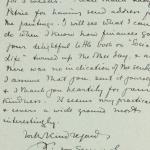 Petrie for having send address
the paintings. I will see what I can
do when I know how finances go
Your delightful little book on Social
Life" turned up the other day, & as
there was no indication of the sender
I assume that you sent it yourself
& I thank you heartily for your
kindness. It seems very practical
& covers a wide ground most
interestingly.
With kind regards